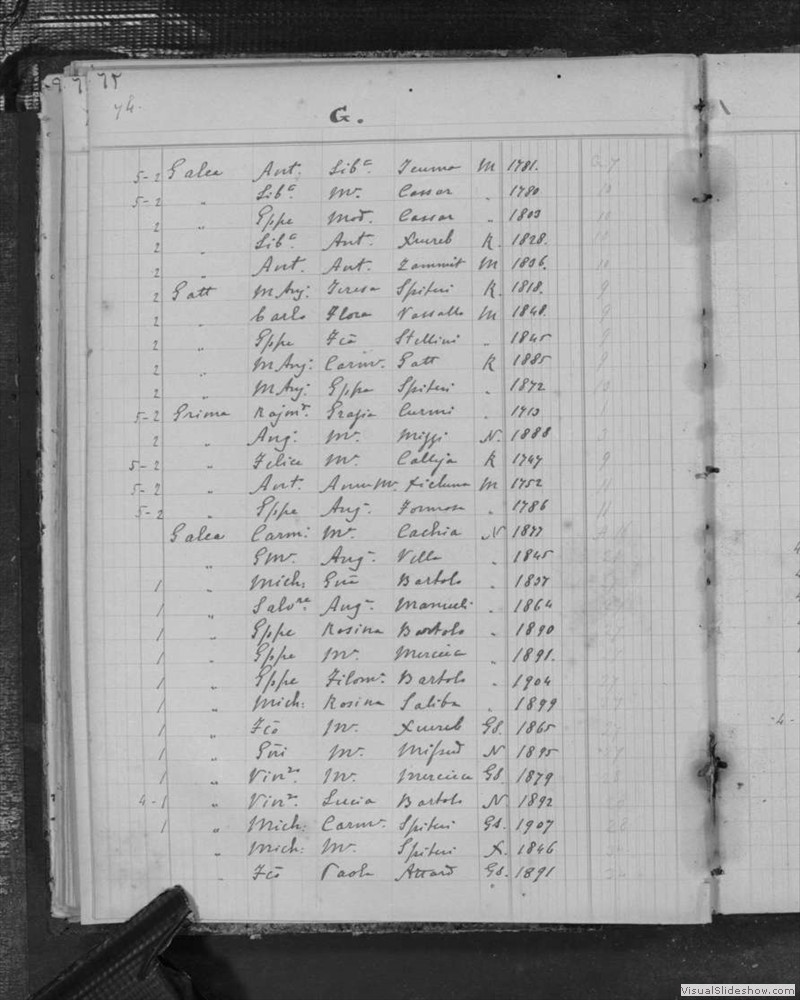 75
74.
G.
5-2 Galea Ant. Libᵃ. M 1781.
5-2 „ Libᵃ. Mᵃ. Cassar „ 1780
2 „ Gppe Mod. Cassar „ 1803
2 „ Libᵃ. Ant. Xuereb K. 1828.
2 „ Ant. Ant. Zammit M 1836.
2 Gatt M Anj. Teresa Spiteri K. 1818.
2 „ Carlo Flora Vassallo M 1848.
2 „ Gppe Fcō Stellini „ 1845
2 „ M Anj. Carmᵃ. Gatt K 1885
2 „ M Anj. Gppa Spiteri „ 1872
5-2 Grima Rajmᵈ. Grazia Curmi „ 1713
2 „ Anj. Mᵃ. Mizzi N. 1888
5-2 „ Felice Mᵃ. Calleja K 1747
5-2 „ Ant. Anna Mᵃ. Xicluna M 1752
5-2 „ Gppe Anj. Formosa „ 1786
Galea Carm. Mᵃ. Cachia N 1877
„ Gmᵃ. Anj. Vella „ 1845
1 „ Mich: Gnā Bartolo „ 1837
1 „ Salvʳᵉ Anj. Mamueli „ 1864
1 „ Gppe Rosina Bartolo „ 1890
1 „ Gppe Mᵃ. Mercieca „ 1891.
1 „ Gppe Filomᵃ. Bartolo „ 1904
1 „ Mich: Rosina Saliba „ 1899
1 „ Fcō Mᵃ. Xuereb Gs. 1865
1 „ Gni Mᵃ. Mifsud N 1895
1 „ Vinᶻᵒ Mᵃ. Mercieca Gs 1879
4-1 „ Vinᶻᵒ Lucia Bartolo N 1892
1 „ Mich: Carmᵃ. Spiteri Gs. 1907
„ Mich: Mᵃ. Spiteri X. 1846
„ Fcō Paola Attard Gs. 1891
VisualSlideshow.com